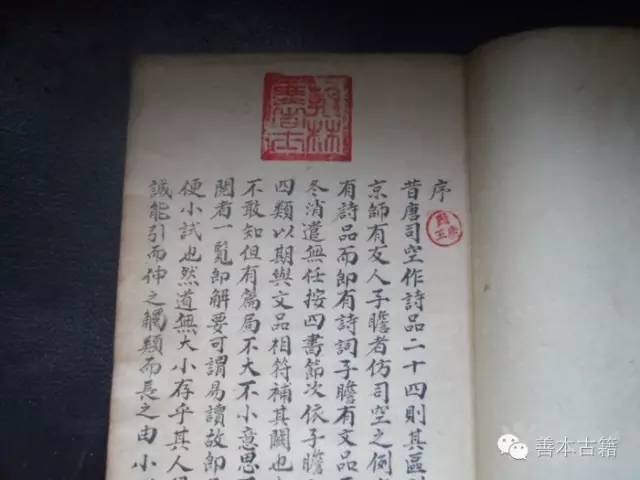 序
昔唐司空作詩品二十四則其區
京師有友人子瞻者仿司空之例
有詩品而即有詩詞子瞻有文品
冬消遣無任按四書節次依子瞻
四類以期與文品相符補其闕也
不敢知但有篇局不大不小意思
閱者一覧即解要可謂易讀故即
便小試也然道無大小存乎其人
誠能引而伸之觸類而長之由小
善本古籍